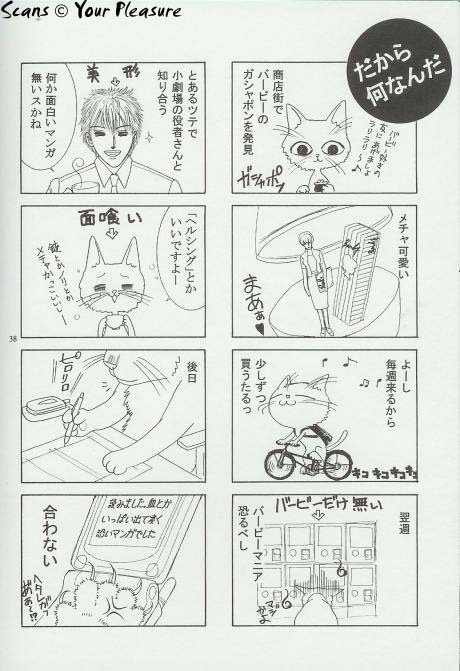 Scans © Your Pleasure
だから
何なんだ
商店街で
バービーの
ガシャポンを発見
バービー好きの
友にあげましょ
ラリラリ〜♪
ガシャポン
メチャ可愛い
まあぁ♥
よーし
毎週来るから
少しずつ
買うたるっ
キコ キコ キコ キコ
翌週
バービーだけ無い
バービーマニア
恐るべし
マジかよ
とあるツテで
小劇場の役者さんと
知り合う
美形
何か面白いマンガ
無いスかね
面喰い
「ヘルシング」とか
いいですよー
銃とかノリとか
メチャかっこいいしー
後日
ピロリロ
読みました。血とか
いっぱい出て凄く
恐いマンガでした
合わない
ヘタレがっ
あぁ〜!?
38